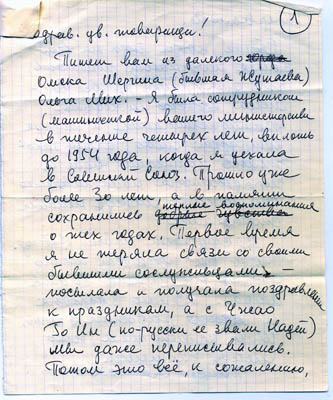 здрав. ув. товарищи!
1
Пишет вам из далекого города
Омска Шергина (бывшая Жупаева)
Ольга Мих. - Я была сотрудником
(машинисткой) вашего министерства
в течение четырех лет, вплоть
до 1954 года, когда я уехала
в Советский Союз. Прошло уже
более 30 лет, а в памяти
сохранились теплые воспоминания
добрые чувства
о тех годах. Первое время
я не теряла связи со своими
бывшими сослуживцами -
посылала и получала поздравления
к праздникам, а с Чжао
Го Ин (по-русски ее звали Надей)
мы даже переписывались.
Потом это всё, к сожалению,